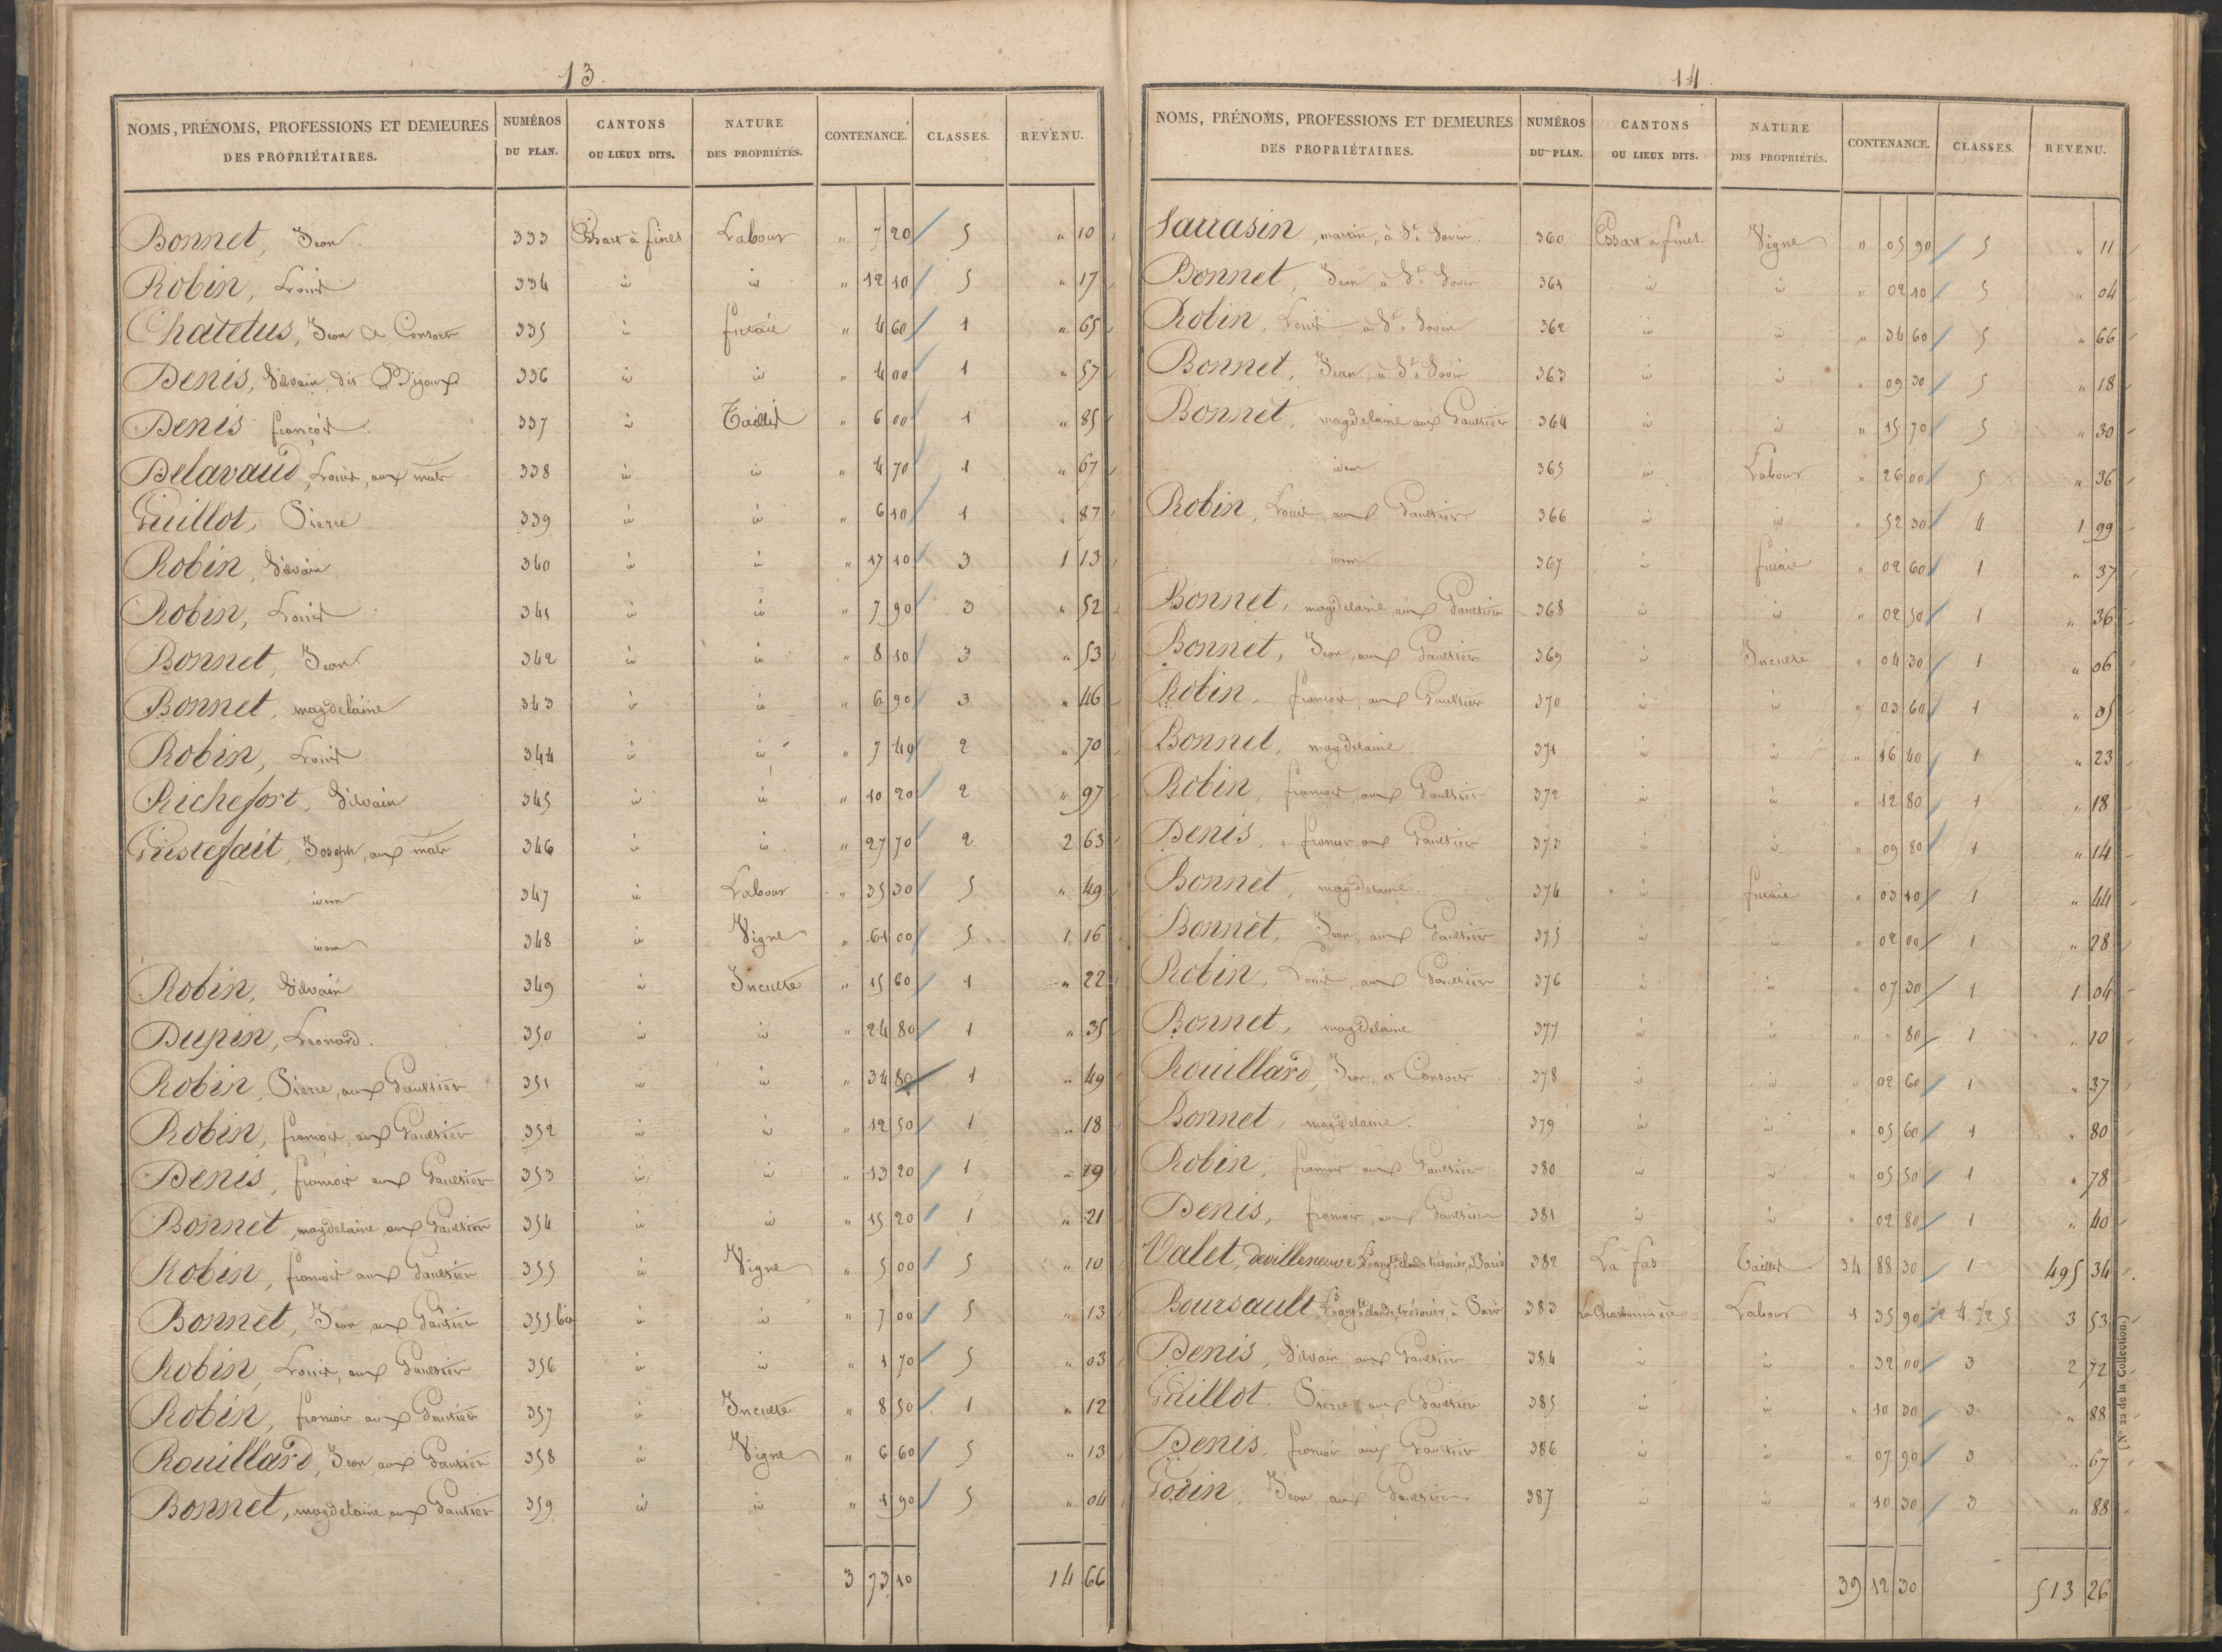 13.
NOMS, PRÉNOMS, PROFESSIONS ET DEMEURES DES PROPRIÉTAIRES. NUMÉROS DU PLAN. CANTONS OU LIEUX DITS. NATURE DES PROPRIÉTÉS. CONTENANCE. CLASSES. REVENU.
Bonnet, Jean 333 Essart à fines Labour " 7 20 5 " 10
Robin, Louis 334 id id " 12 10 5 " 17
Chatelus, Jean & Consors 335 id futaie " 4 60 1 " 65
Denis, Silvain, dit Bijoux 336 id id " 4 00 1 " 57
Denis françois 337 id Taillis " 6 00 1 " 85
Delavaud, Louis, aux mats 338 id id " 4 70 1 " 67
Guillot, Pierre 339 id id " 6 10 1 " 87
Robin, Silvain 340 id id " 17 10 3 1 13
Robin, Louis 341 id id " 7 90 3 " 52
Bonnet, Jean 342 id id " 8 10 3 " 53
Bonnet, magdelaine 343 id id " 6 90 3 " 46
Robin, Louis 344 id id " 7 40 2 " 70
Richefort, Silvain 345 id id " 10 20 2 " 97
Joseph, aux mats 346 id id " 27 70 2 2 63
idem 347 id Labour " 35 30 5 " 49
idem 348 id Vigne " 61 00 5 1 16
Robin, Silvain 349 id Inculte " 15 60 1 " 22
Dupin, Leonard. 350 id id " 24 80 1 " 35
Robin, Pierre, aux Gaultier 351 id id " 34 80 1 " 49
Robin, françois, aux Gaultier 352 id id " 12 50 1 " 18
Denis, françois aux Gaultier 353 id id " 13 20 1 " 19
Bonnet, magdelaine aux Gaultier 354 id id " 15 20 1 " 21
Robin, françois aux Gaultier 355 id Vigne " 5 00 5 " 10
Bonnet, Jean aux Gaultier 355 bis id id " 7 00 5 " 13
Robin, Louis, aux Gaultier 356 id id " 1 70 5 " 03
Robin, françois aux Gaultier 357 id Inculte " 8 50 1 " 12
Rouillard, Jean aux Gaultier 358 id Vigne " 6 60 5 " 13
Bonnet, magdelaine aux Gaultier 359 id id " 1 90 5 " 04
3 73 10 14 66
14.
NOMS, PRÉNOMS, PROFESSIONS ET DEMEURES DES PROPRIÉTAIRES. NUMÉROS DU PLAN. CANTONS OU LIEUX DITS. NATURE DES PROPRIÉTÉS. CONTENANCE. CLASSES. REVENU.
Sarrasin, martin, à St. Savin 360 Essart à fines Vigne " 05 90 5 " 11
Bonnet, Jean, à St. Savin 361 id id " 02 10 5 " 04
Robin, Louis à St. Savin 362 id id " 34 60 5 " 66
Bonnet, Jean, à St. Savin 363 id id " 09 30 5 " 18
Bonnet, magdelaine aux Gaultier 364 id id " 15 70 5 " 30
idem 365 id Labour " 26 00 5 " 36
Robin, Louis, aux Gaultier 366 id id " 52 30 4 1 99
idem 367 id futaie " 02 60 1 " 37
Bonnet, magdelaine aux Gaultier 368 id id " 02 50 1 " 36
Bonnet, Jean, aux Gaultier 369 id Inculte " 04 30 1 " 06
Robin, françois, aux Gaultier 370 id id " 03 60 1 " 05
Bonnet, magdelaine 371 id id " 16 40 1 " 23
Robin, françois, aux Gaultier 372 id id " 12 80 1 " 18
Denis, françois aux Gaultier 373 id id " 09 80 1 " 14
Bonnet, magdelaine. 374 id futaie " 03 10 1 " 44
Bonnet, Jean, aux Gaultier 375 id id " 02 00 1 " 28
Robin, Louis, aux Gaultier 376 id id " 07 30 1 1 04
Bonnet, magdelaine 377 id id " " 80 1 " 10
Rouillard, Jean, et Consors 378 id id " 02 60 1 " 37
Bonnet, magdelaine. 379 id id " 05 60 1 " 80
Robin, françois aux Gaultier 380 id id " 05 50 1 " 78
Denis, françois, aux Gaultier 381 id id " 02 80 1 " 40
Valet, devilleneuve 382 La fas Taillis 34 88 30 1 495 34
Boursault, claude, trésorier, à Paris 383 La Charbonnière Labour 1 35 90 1/2 4 1/2 5 3 53
Denis, Silvain aux Gaultier 384 id id " 32 00 3 2 72
Guillot. Pierre aux Gaultier 385 id id " 10 30 3 " 88
Denis, françois aux Gaultier 386 id id " 07 90 3 " 67
Godin, Jean aux Gaultier. 387 id id " 10 30 3 " 88
39 12 30 513 26
(N° 22 de la Collection.)